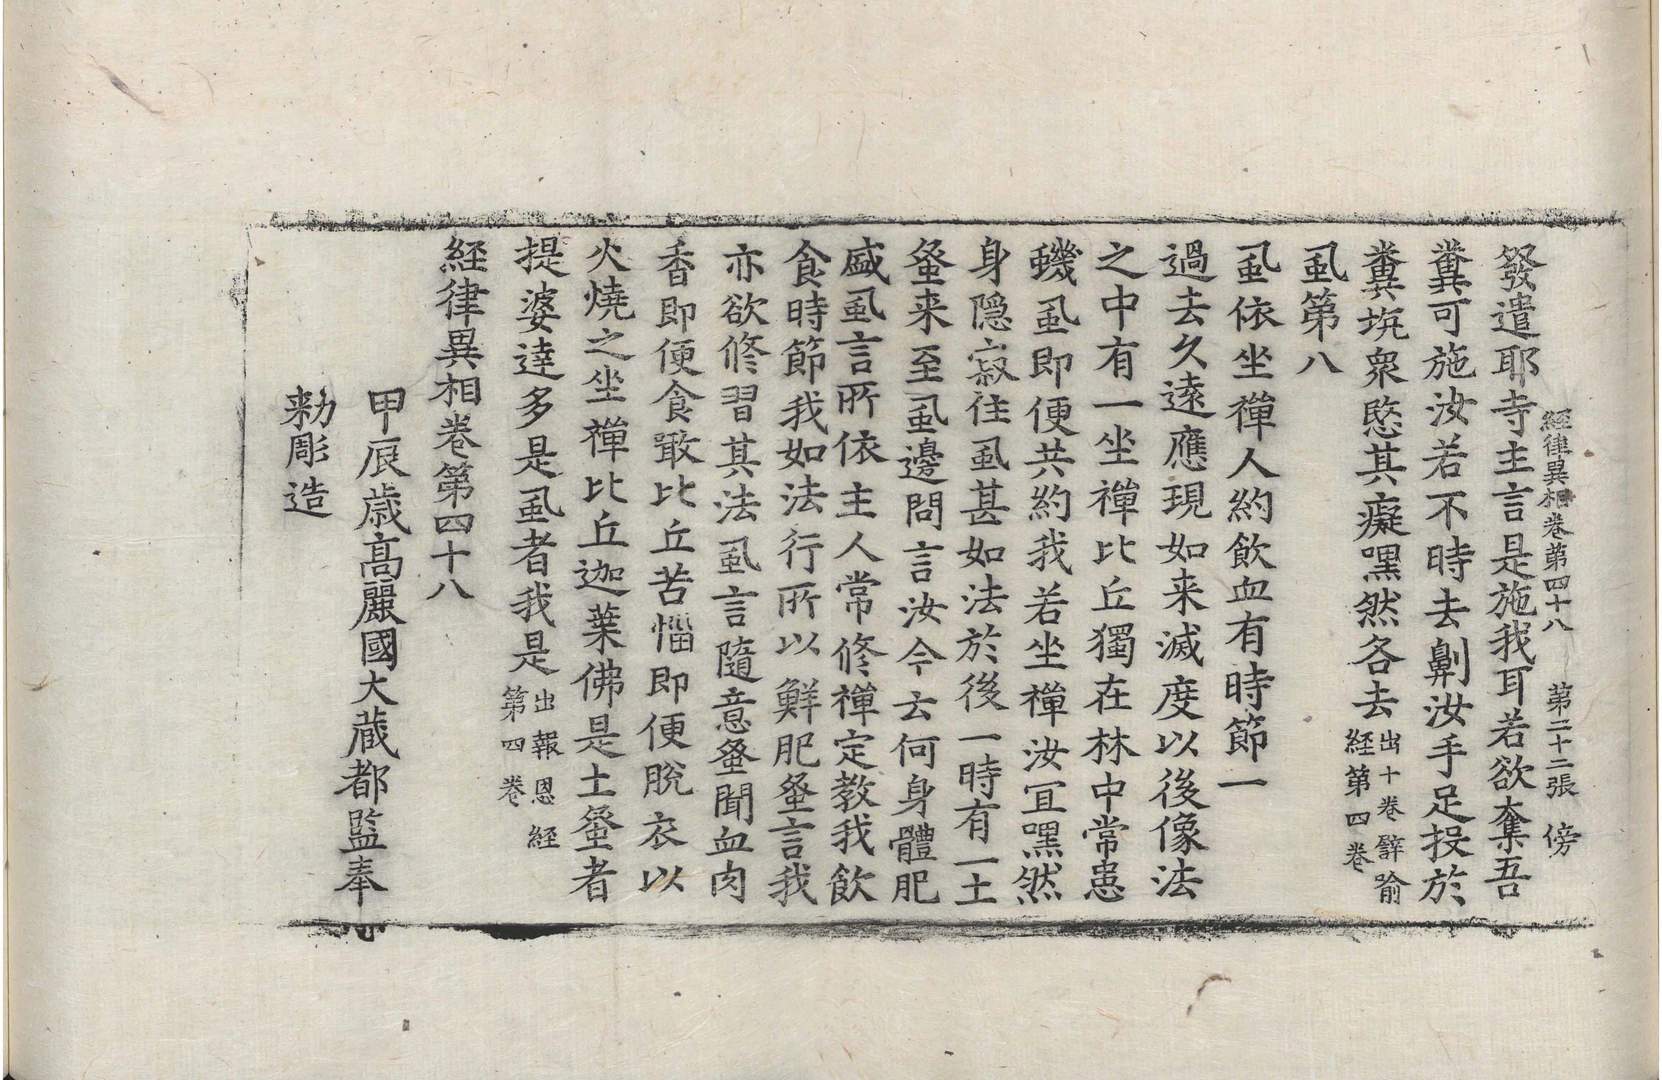 經律異相卷第四十八 第二十二張 傍
發遣耶寺主言是施我耳若欲奪吾
糞可施汝若不時去劓汝手足投於
糞坑衆愍其癡嘿然各去出十卷譬喻經第四卷
虱第八
虱依坐禪人約飲血有時節一
過去久遠應現如来滅度以後像法
之中有一坐禪比丘獨在林中常患
蟣虱即便共約我若坐禪汝宜嘿然
身隱寂住虱甚如法於後一時有一土
蚤来至虱邊問言汝今云何身體肥
盛虱言所依主人常修禪定教我飲
食時節我如法行所以鮮肥蚤言我
亦欲修習其法虱言隨意蚤聞血肉
香即便食噉比丘苦惱即便脫衣以
火燒之坐禪比丘迦葉佛是土蚤者
提婆達多是虱者我是出報恩經第四卷
經律異相卷第四十八
甲辰歲高麗國大藏都監奉
勑彫造